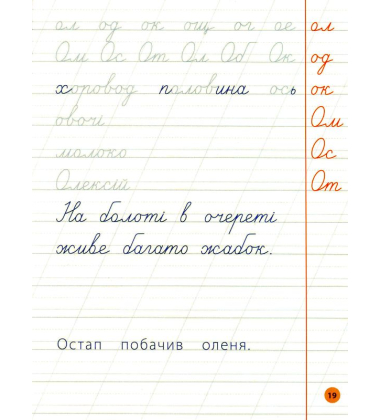 ол од ок ощ ог ое ол
Ом Ос От Ол Об Ок од
хоровод половина ось ок
овочі Ом
молоко Ос
Олексій От
На болоті в очереті
живе багато жабок.
Остап побачив оленя.
19